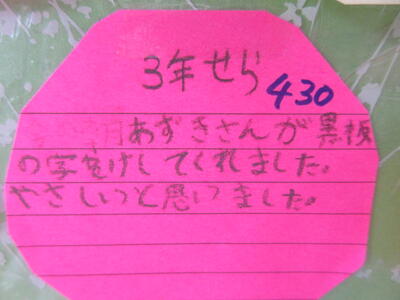 3年せら
430
今朝あずきさんが黒板
の字をけしてくれました。
やさしいっと思いました。